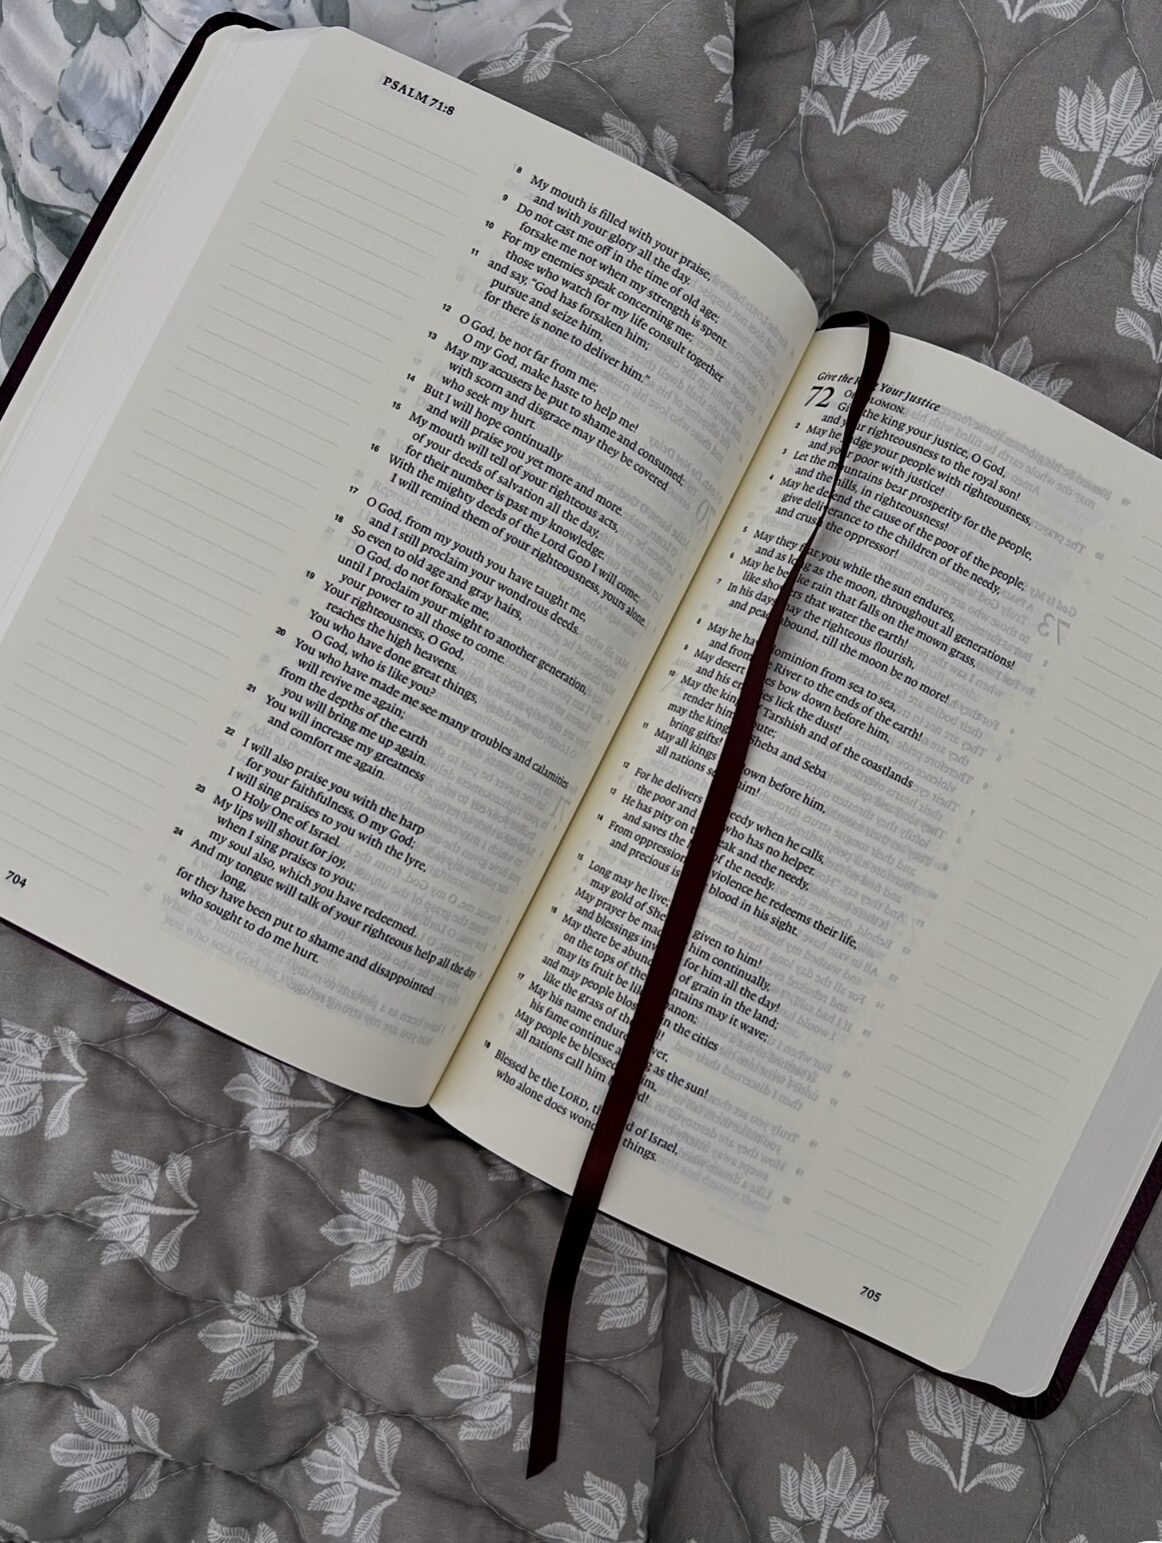 PSALM 71:8
8 My mouth is filled with your praise,
and with your glory all the day.
9 Do not cast me off in the time of old age;
forsake me not when my strength is spent.
10 For my enemies speak concerning me;
those who watch for my life consult together
11 and say, "God has forsaken him;
pursue and seize him,
for there is none to deliver him."
12 O God, be not far from me;
O my God, make haste to help me!
13 May my accusers be put to shame and consumed;
with scorn and disgrace may they be covered
who seek my hurt.
14 But I will hope continually
and will praise you yet more and more.
15 My mouth will tell of your righteous acts,
of your deeds of salvation all the day,
for their number is past my knowledge.
16 With the mighty deeds of the Lord GOD I will come;
I will remind them of your righteousness, yours alone.
17 O God, from my youth you have taught me,
and I still proclaim your wondrous deeds.
18 So even to old age and gray hairs,
O God, do not forsake me,
until I proclaim your might to another generation,
your power to all those to come.
19 Your righteousness, O God,
reaches the high heavens.
You who have done great things,
O God, who is like you?
20 You who have made me see many troubles and calamities
will revive me again;
from the depths of the earth
you will bring me up again.
21 You will increase my greatness
and comfort me again.
22 I will also praise you with the harp
for your faithfulness, O my God;
I will sing praises to you with the lyre,
O Holy One of Israel.
23 My lips will shout for joy,
when I sing praises to you;
my soul also, which you have redeemed.
24 And my tongue will talk of your righteous help all the day
long,
for they have been put to shame and disappointed
who sought to do me hurt.
704
Give the Your Justice
72 SOLOMON.
Give the king your justice, O God,
and your righteousness to the royal son!
2 May he judge your people with righteousness,
and your poor with justice!
3 Let the mountains bear prosperity for the people,
and the hills, in righteousness!
4 May he defend the cause of the poor of the people,
give deliverance to the children of the needy,
and crush the oppressor!
5 May they fear you while the sun endures,
and as long as the moon, throughout all generations!
6 May he be like rain that falls on the mown grass,
like showers that water the earth!
7 In his days may the righteous flourish,
and peace abound, till the moon be no more!
8 May he have dominion from sea to sea,
and from River to the ends of the earth!
9 May desert bow down before him,
and his lick the dust!
10 May the Tarshish and of the coastlands
render him
may the kings Sheba and Seba
bring gifts!
11 May all kings down before him,
all nations him!
12 For he delivers needy when he calls,
the poor and who has no helper.
13 He has pity on weak and the needy,
and saves the of the needy.
14 From oppression violence he redeems their life,
and precious is blood in his sight.
15 Long may he live;
may gold of given to him!
May prayer be made him continually,
and blessings for him all the day!
16 May there be of grain in the land;
on the tops of the mountains may it wave;
may its fruit be like
and may people in the cities
like the grass of the
17 May his name endure
his fame continue as the sun!
May people be blessed him,
all nations call him
18 Blessed be the LORD, of Israel,
who alone does things.
705